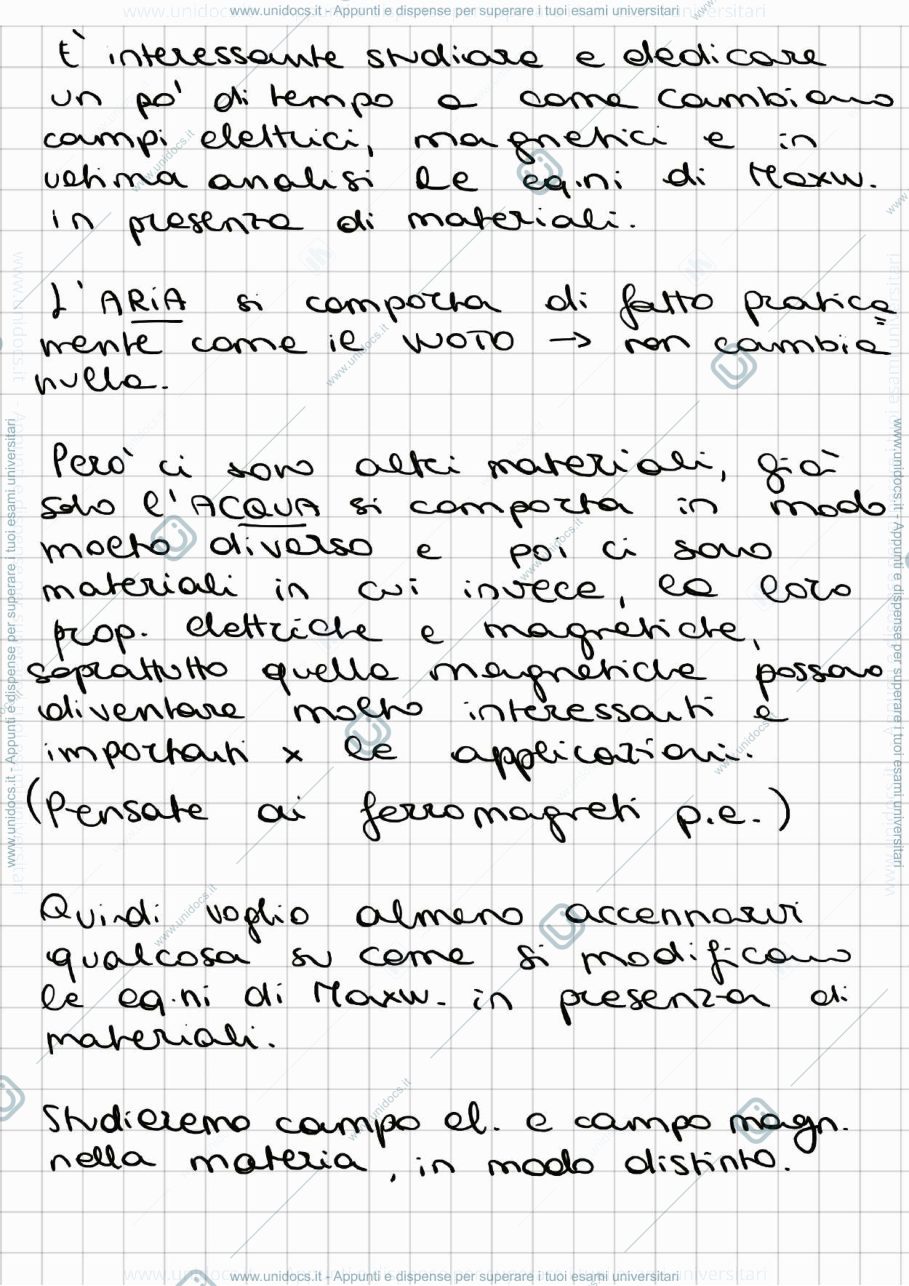 www.unidocs.it - Appunti e dispense per superare i tuoi esami universitari
È interessante studiare e dedicare
un po' di tempo a come cambiano
campi elettrici, magnetici e in
ultima analisi le eq.ni di Maxw.
in presenza di materiali.
L'ARIA si comporta di fatto pratica
mente come il VUOTO → non cambia
nulla.
Però ci sono altri materiali, già
solo l'ACQUA si comporta in modo
molto diverso e poi ci sono
materiali in cui invece, le loro
prop. elettriche e magnetiche,
soprattutto quelle magnetiche possono
diventare molto interessanti e
importanti x le applicazioni.
(Pensate ai ferromagneti p.e.)
Quindi voglio almeno accennarvi
qualcosa su come si modificano
le eq.ni di Maxw. in presenza di
materiali.
Studieremo campo el. e campo magn.
nella materia, in modo distinto.
www.unidocs.it - Appunti e dispense per superare i tuoi esami universitari